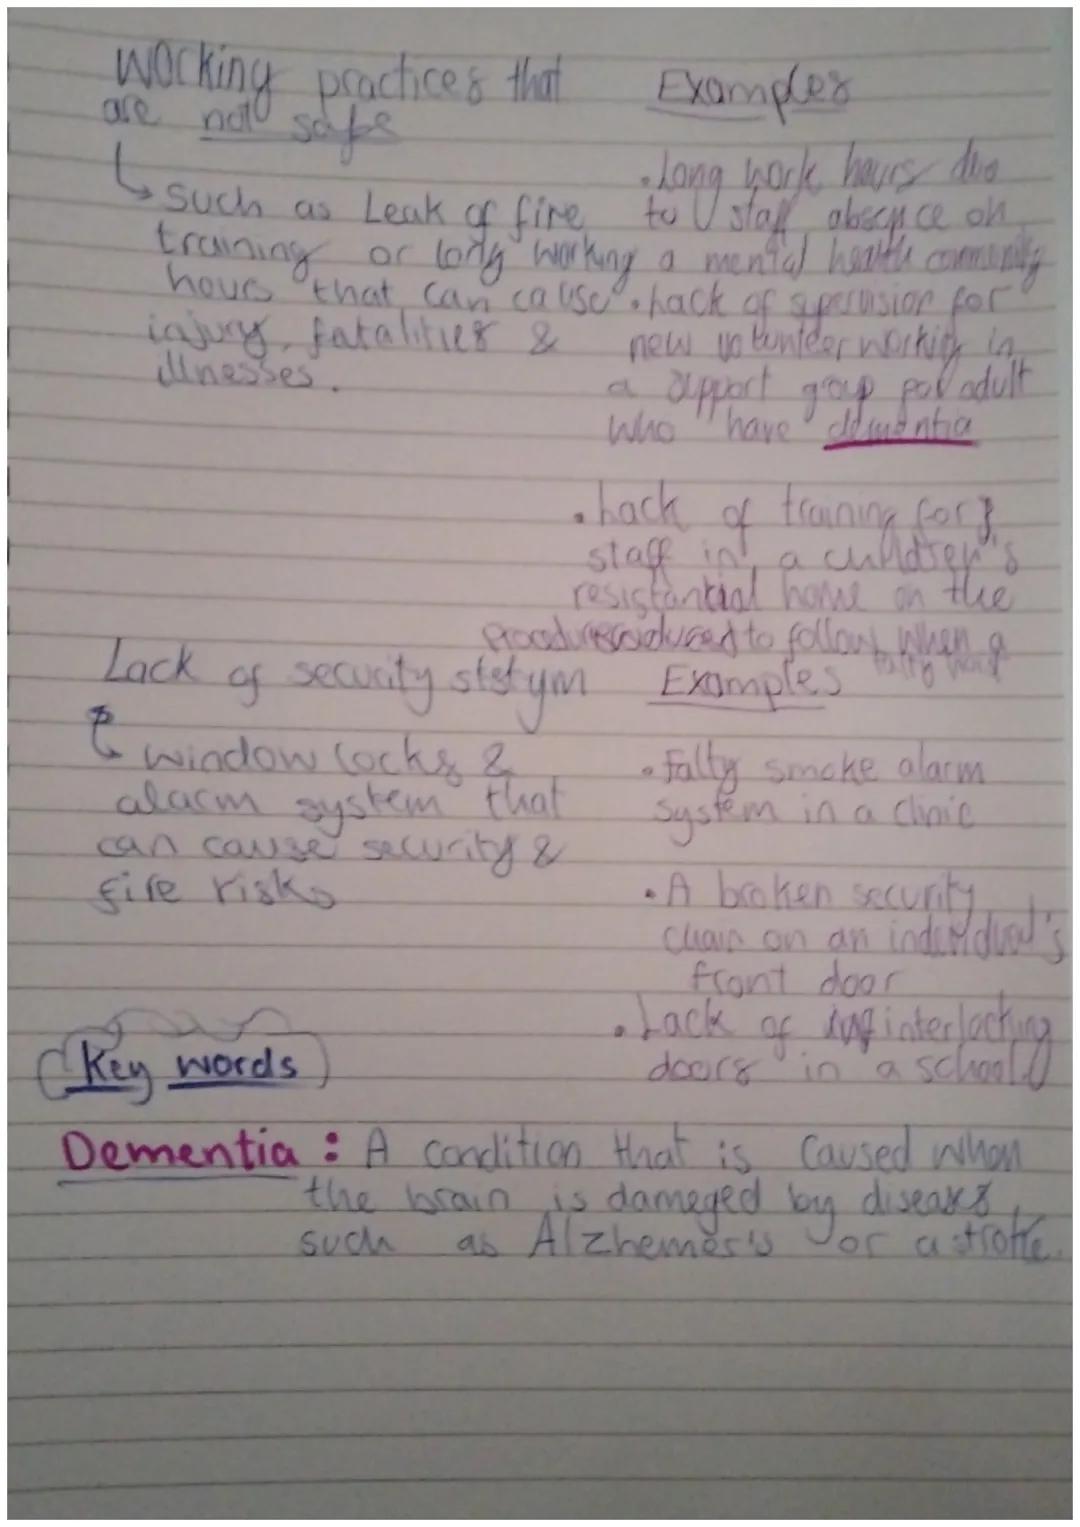 Working practices that
are not safe
such as Leak of fire
training or long working
hours that can cause
injury, fatalities &
illnesses.
Examples
• Long work hours due
to staff absence on
a mental health community
• Lack of supervision for
new volunteer working in
a support group for adult
who have dementia
• Lack of training for
staff in a children's
resistantial home on the
to follow when a
Lack of security stetym
window locks &
alarm system that
can cause security &
fire risks
Examples
• Falty smoke alarm
system in a clinic
• A broken security
chain on an individual's
front door
• Lack of interlocking
doors in a school.
Key words
Dementia : A condition that is caused when
the brain is dameged by diseases,
such as Alzhemer's or a stroke.